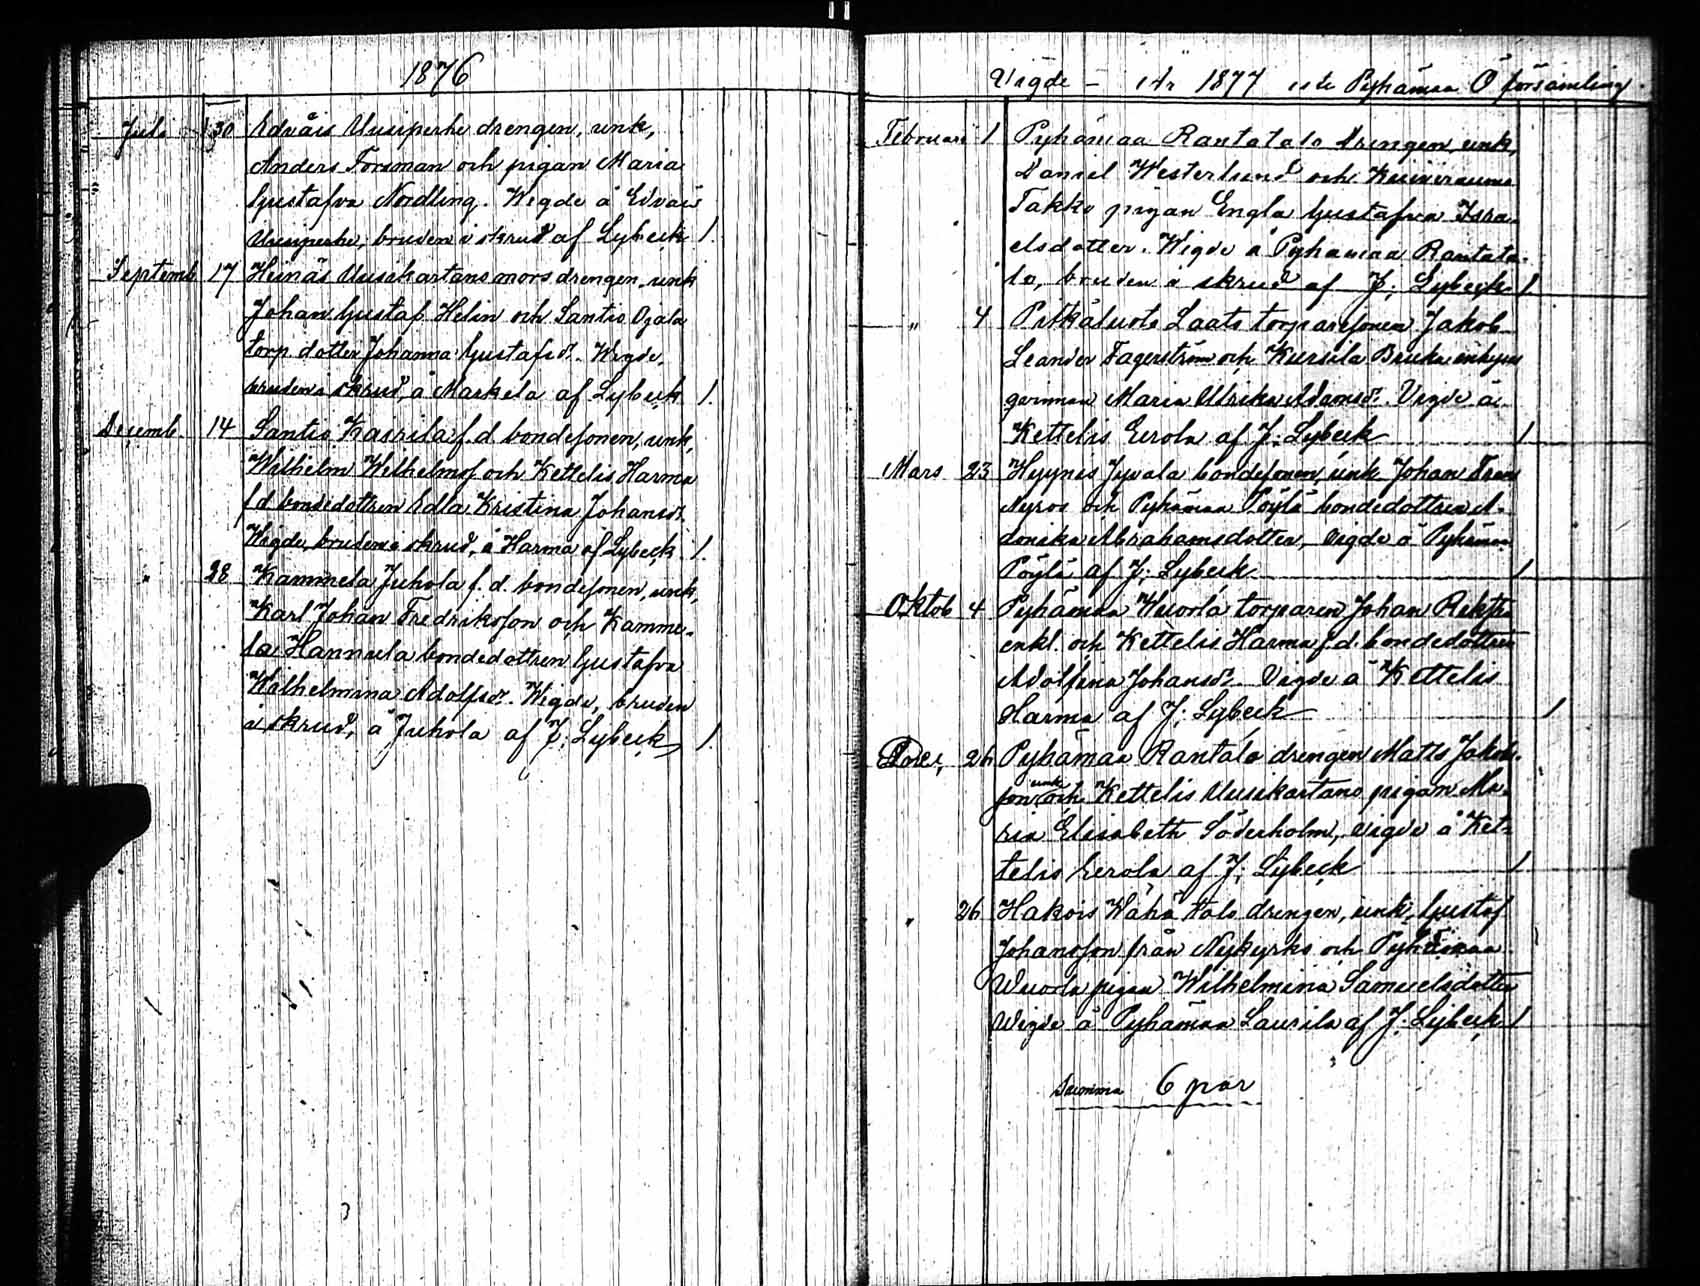 1876
Juli 30 Edväis Uusiperhe drengen, unk,
Anders Forsman och pigan Maria
Gustafva Nordling. Wigde å Edväis
Uusiperhe, bruden i skrud af Lybeck 1.
Septemb 17 Heinäs Uusikartano mors drengen, unk
Johan Gustaf Helin och Santio Ojala
torp dotter Johanna Gustafsdr. Wigde,
bruden i skrud, å Markela af Lybeck 1.
Decemb 14 Santio Kaurila f.d. bondesonen, unk,
Wilhelm Wilhelmsf och Kettelis Harma
f.d bondedottren Edla Kristina Johansdr.
Wigde, bruden i skrud, å Harma af Lybeck 1.
" 28 Kammela Juhola f.d. bondesonen, unk,
Karl Johan Fredriksson och Kamme-
la Hannula bondedottren Gustafva
Wilhelmina Adolfsdr. Wigde, bruden
i skrud, å Juhola af J. Lybeck 1.
Vigde – År 1877 uti Pyhämaa Ö församling.
Februari 1 Pyhämaa Rantatalo drengen, unk,
Daniel Westerlund och
Takko pigan Engla Gustafva Isra-
elsdotter. Wigde å Pyhämaa Rantata-
lo, bruden i skrud af J. Lybeck 1.
" 4 Pitkäluoto Laats torparesonen Jakob
Leander Fagerström och Kursila
qvinnan Maria Ulrika Adamsdr. Vigde å
Kettelis Eerola af J. Lybeck 1
Mars 23 Heynes Jyvälä bondesonen, unk Johan
Nyroos och Pyhämaa Pöylä bondedottren A-
Abrahamsdotter, vigde å Pyhämaa
Pöylä af J. Lybeck 1
Oktob 4 Pyhämaa Wuorla torparen Johan
enkl. och Kettelis Harma f.d. bondedottren
Adolfina Johansdr. Vigde å Kettelis
Harma af J. Lybeck 1
Dec, 26 Pyhämaa Rantalo drengen Matts Jakobs-
son unk och Kettelis Uusikartano pigan Ma-
ria Elisabeth Söderholm, vigde å Ket-
telis Eerola af J. Lybeck 1
" 26 Hakois Wähä talo drengen, unk, Gustaf
Johansson från Nykyrko och Pyhämaa
Wuorla pigan Wilhelmina Samuelsdotter
Wigde å Pyhämaa Laurila af J. Lybeck 1
Summa 6 par